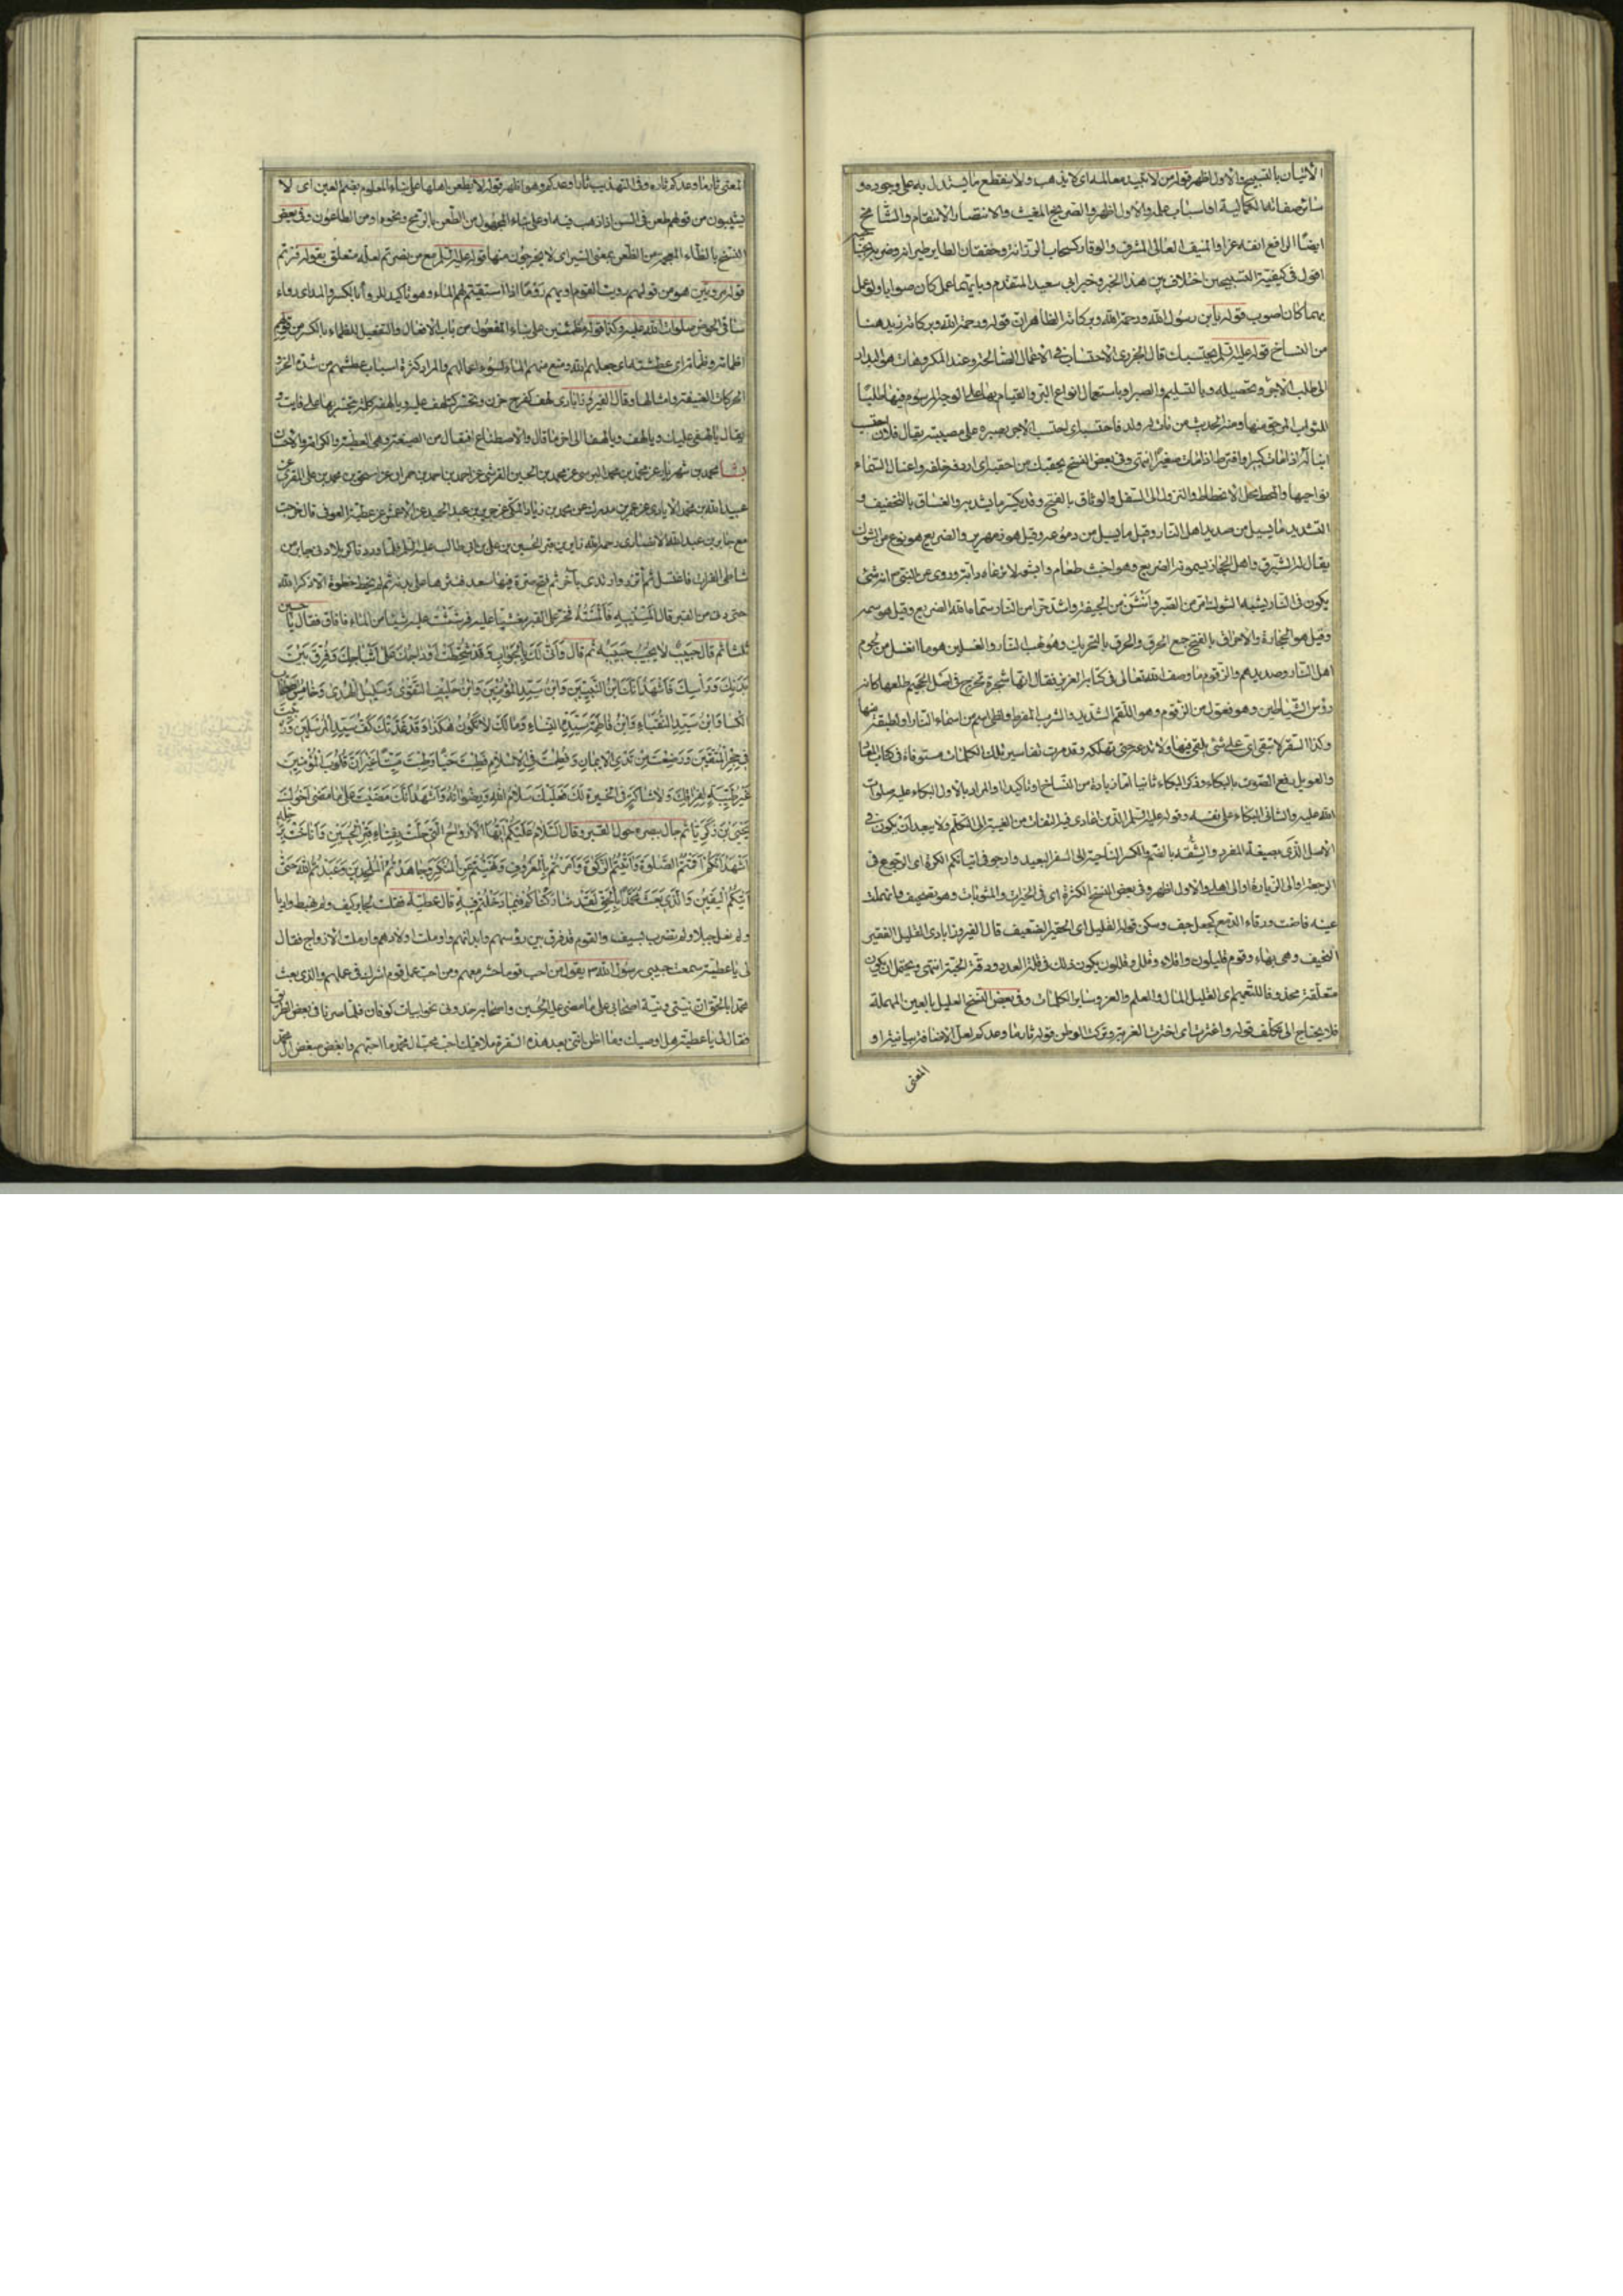 الاتيان بالتسبيح والاول اظهر قوله من لا تبيد معالمه اى لا يذهب ولا ينقطع ما يستدل به على وجوده و
ايضًا الرافع انفه عزا والمنيف العالى المشرف والوقار كسحاب الرزانة وخفقان الطاير طيرانه وضربه بجناحيه
اقول فى كيفية التسبيحين اختلاف بين هذا الخبر وخبر ابى سعيد المتقدم وبايهما عمل كان صوابا ولو عمل
بهما كان اصوب قوله يا بن رسول الله ورحمة الله وبركاته الظاهر ان قوله ورحمة الله وبركاته زيد هنا
من النساخ قوله عليه السلم قال الجزرى الاحتساب فى الاعمال الصالحة وعند المكروهات هو البدار
الى طلب الاجر وتحصيله وبالتسليم والصبر او باستعمال انواع البر والقيام بها على الوجه المرسوم فيها طلبًا
للثواب المرجو منها ومنه الحديث من مات له ولد فاحتسبه اى احتسب الاجر بصبره على مصيبته يقال فلان احتسب
ابنا له اذا مات كبيرا وافترطه اذا مات صغيرًا انتهى وفى بعض النسخ
نواحيها والمحط محل الانحطاط والنزول الى السفل والوثاق بالفتح وقد يكسر ما يشد به والغساق بالتخفيف و
التشديد ما يسيل من صديد اهل النار وقيل ما يسيل من دموعهم وقيل هو زمهرير والضريع هو نوع من الشوك
يقال له الشبرق واهل الحجاز يسمونه الضريع وهو اخبث طعام وابشعه لا ترعاه دابة وروى عن النبى ص انه شئ
يكون فى النار يشبه الشوك امر من الصبر وانتن من الجيفة واشد حرا من النار سماه الله الضريع وقيل هو سم
وقيل هو الحجارة والحرق بالتحريك وهو لهب النار والغسلين هو ما انغسل من لحوم
اهل النار وصديدهم والزقوم ما وصف الله تعالى فى كتابه العزيز فقال انها شجرة تخرج فى اصل الجحيم طلعها كانه
رؤس الشياطين وهو فعول من الزقم وهو اللقم الشديد والشرب المفرط ولظى اسم من اسماء النار او لطبقة منها
وكذا السقر لا تبقى اى على شئ يلقى فيها ولا تدعه حتى تهلكه وقد مرت تفاسير تلك الكلمات مستوفاة فى كتاب المعاد
والعويل رفع الصوت بالبكاء وذكر البكاء ثانيا اما زيادة من النساخ او تاكيد او المراد بالاول البكاء عليه صلوات
الله عليه والثانى البكاء على نفسه وقوله عليه السلم الذين فيه التفات من الغيبة الى التكلم ولا يبعد ان يكون فى
الاصل الذى بصيغة المفرد والشقة بالضم والكسر الناحية والسفر البعيد وارجو فى اتيانكم الكرة اى الرجوع فى
الرجعة او الى الزيارة او الى اهلى والاول اظهر وفى بعض النسخ الكثرة اى فى الخيرات والمثوبات وهو تصحيف
عينه فاضت ورقاء الدمع كجعل جف وسكن قوله القليل اى الحقير الضعيف قال الفيروزابادى القليل الفقير
النحيف وهى بهاء وقوم قليلون واقلاء وقلل وقللون يكون ذلك فى قلة العدد ودقة الجثة انتهى ويحتمل ان يكون
متعلقة محذوفا للتعميم اى القليل المال والعلم والعز وساير الكلمات وفى بعض النسخ العليل بالعين المهملة
فلا يحتاج الى تكلف قوله واغتربت اى اخترت الغربة وتركت الوطن قوله ثاره ما وعدكم لعل الاضافة بيانية او
المعنى
المعنى ثاره ما وعدكم ثاره وفى التهذيب ثارنا وعدكم وهو اظهر قوله لا يظعن اهلها على بناء المعلوم بضم العين اى لا
يشيبون من قولهم طعن فى السن اذا ذهب فيه او على بناء المجهول من الطعن بالرمح ونحوه او من الطاعون وفى بعض
النسخ بالظاء المعجمة من الظعن بمعنى السير اى لا يخرجون منها
ساقى الحوض صلوات الله عليه وكذا قوله وظمئت من على بناء المفعول من باب الافعال والتفعيل للظماء بالكسر من قولهم
اظمأته وظمأته اى عطشته اى جعلهم الله ومنع منهم الماء لسوء اعمالهم والمراد كثرة اسباب عطشهم من شدة الحر و
الحركات العنيفة وامثالها وقال الفيروزابادى لهف كفرح حزن وتحسر كتلهف عليه ويا لهفه كلمة يتحسر بها على فايت و
يقال يا لهفى عليك ويا لهف ويا لهفا الى اخر ما قال والاصطناع افتعال من الصنيعة وهى العطية والكرامة والاحسان
بشا محمد بن شهريار عن محمد بن محمد البرسى عن محمد بن الحسين القرشى عن احمد بن احمد بن حمران عن اسحق بن محمد بن على المقرى عن
عبيد الله بن محمد الايادى عن عمر بن مدرك عن محمد بن زياد المكى عن جرير بن عبد الحميد عن الاعمش عن عطية العوفى قال خرجت
مع جابر بن عبد الله الانصارى رحمه الله زايرين قبر الحسين بن على بن ابى طالب عليه السلم فلما وردنا كربلا دنى جابر من
شاطئ الفرات فاغتسل ثم اتزر وارتدى بآخر ثم فتح صرة فيها سعد فنثرها على بدنه ثم لم يخط خطوة الا ذكر الله
حتى دنى من القبر قال المسنيه فالمسته فخر على القبر مغشيا عليه فرششت عليه شيئا من الماء فافاق فقال يا حسين
ثلثا ثم قال حبيب لا يجيب حبيبه ثم قال وانى لك بالجواب وقد شحطت اوداجك على اثباجك وفرق بين
بدنك وراسك فاشهد انك ابن النبيين وابن سيد المؤمنين وابن حليف التقوى وسليل الهدى وخامس اصحاب
الكسا وابن سيد النقباء وابن فاطمة سيدة النساء وما لك لا تكون هكذا وقد غذتك كف سيد المرسلين وربيت
فى حجر المتقين ورضعت من ثدى الايمان وفطمت فى الاسلام فطبت حيا وطبت ميتا غير ان قلوب المؤمنين
غير طيبة لفراقك ولا شاكة فى الخيرة لك فعليك سلام الله ورضوانه واشهد انك مضيت على ما مضى اخوك
يحيى بن زكريا ثم جال ببصره حول القبر وقال السلام عليكم ايها الارواح التى حلت بفناء قبر الحسين واناخت برحله
اشهد انكم اقمتم الصلوة واتيتم الزكوة وامرتم بالمعروف ونهيتم عن المنكر وجاهدتم الملحدين وعبدتم الله حتى
اتيكم اليقين والذى بعث محمدا بالحق لقد شاركناكم فيما دخلتم فيه قال عطية فقلت لجابر وكيف ولم نهبط واديا
ولم نعل جبلا ولم نضرب بسيف والقوم قد فرق بين رؤسهم وابدانهم واوتمت اولادهم وارملت الازواج فقال
لى يا عطية سمعت حبيبى رسول الله ص يقول من احب قوما حشر معهم ومن احب عمل قوم اشرك فى عملهم والذى بعث
محمدا بالحق ان نيتى ونية اصحابى على ما مضى عليه الحسين واصحابه خذونى نحو ابيات كوفان فلما صرنا فى بعض الطريق
فقال لى يا عطية هل اوصيك وما اظن اننى بعد هذه السفرة ملاقيك احب محب ال محمد ما احبهم وابغض مبغض ال محمد